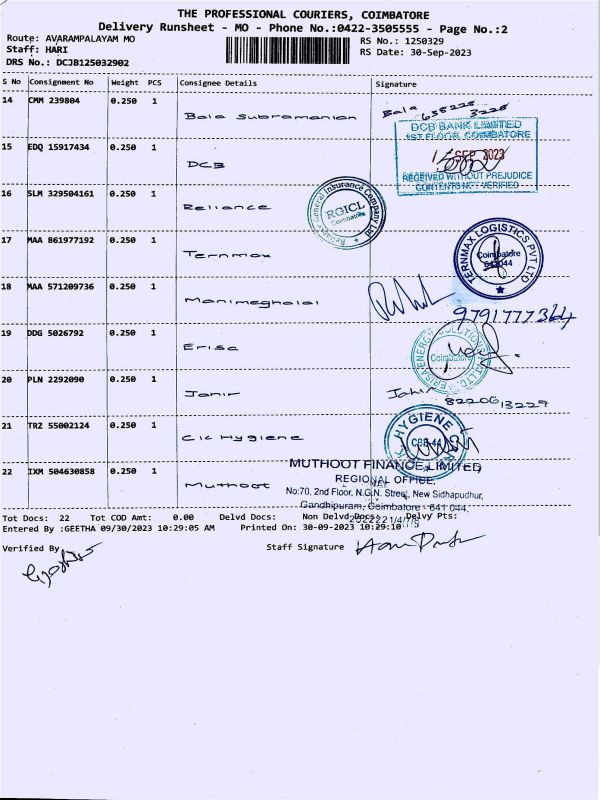 THE PROFESSIONAL COURIERS, COIMBATORE
Delivery Runsheet - MO - Phone No.:0422-3505555 - Page No.:2
Route: AVARAMPALAYAM MO RS No.: 1250329
Staff: HARI RS Date: 30-Sep-2023
DRS No.: DCJB125032902
S No Consignment No Weight PCS Consignee Details Signature
14 CMM 239804 0.250 1 Bala Subramanian Bala
DCB BANK LIMITED
1ST FLOOR, COIMBATORE
15 EDQ 15917434 0.250 1 DCB SEP 2023
RECEIVED WITHOUT PREJUDICE
CONTENTS NOT VERIFIED
16 SLM 329504161 0.250 1 Reliance
Reliance General Insurance Company Ltd
RGICL
Coimbatore
17 MAA 861977192 0.250 1 Ternmax
TERNMAX LOGISTICS PVT LTD
Coimbatore
641044
18 MAA 571209736 0.250 1 Manimeghalai
9791777344
19 DDG 5026792 0.250 1 Erisa
ERISA ENERGY SOLUTIONS PVT.LTD.
Coimbatore
20 PLN 2292090 0.250 1 Janir
8220613229
21 TRZ 55002124 0.250 1 Cic Hygiene
HYGIENE
CBE-44
22 IXM 504630858 0.250 1 Muthoot
MUTHOOT FINANCE LIMITED
REGIONAL OFFICE
No:70, 2nd Floor, N.G.N. Street, New Sidhapudhur,
Gandhipuram, Coimbatore - 641 044.
Tot Docs: 22 Tot COD Amt: 0.00 Delvd Docs: Non Delvd Docs: Delvy Pts:
Entered By :GEETHA 09/30/2023 10:29:05 AM Printed On: 30-09-2023 10:29:10
Verified By Staff Signature